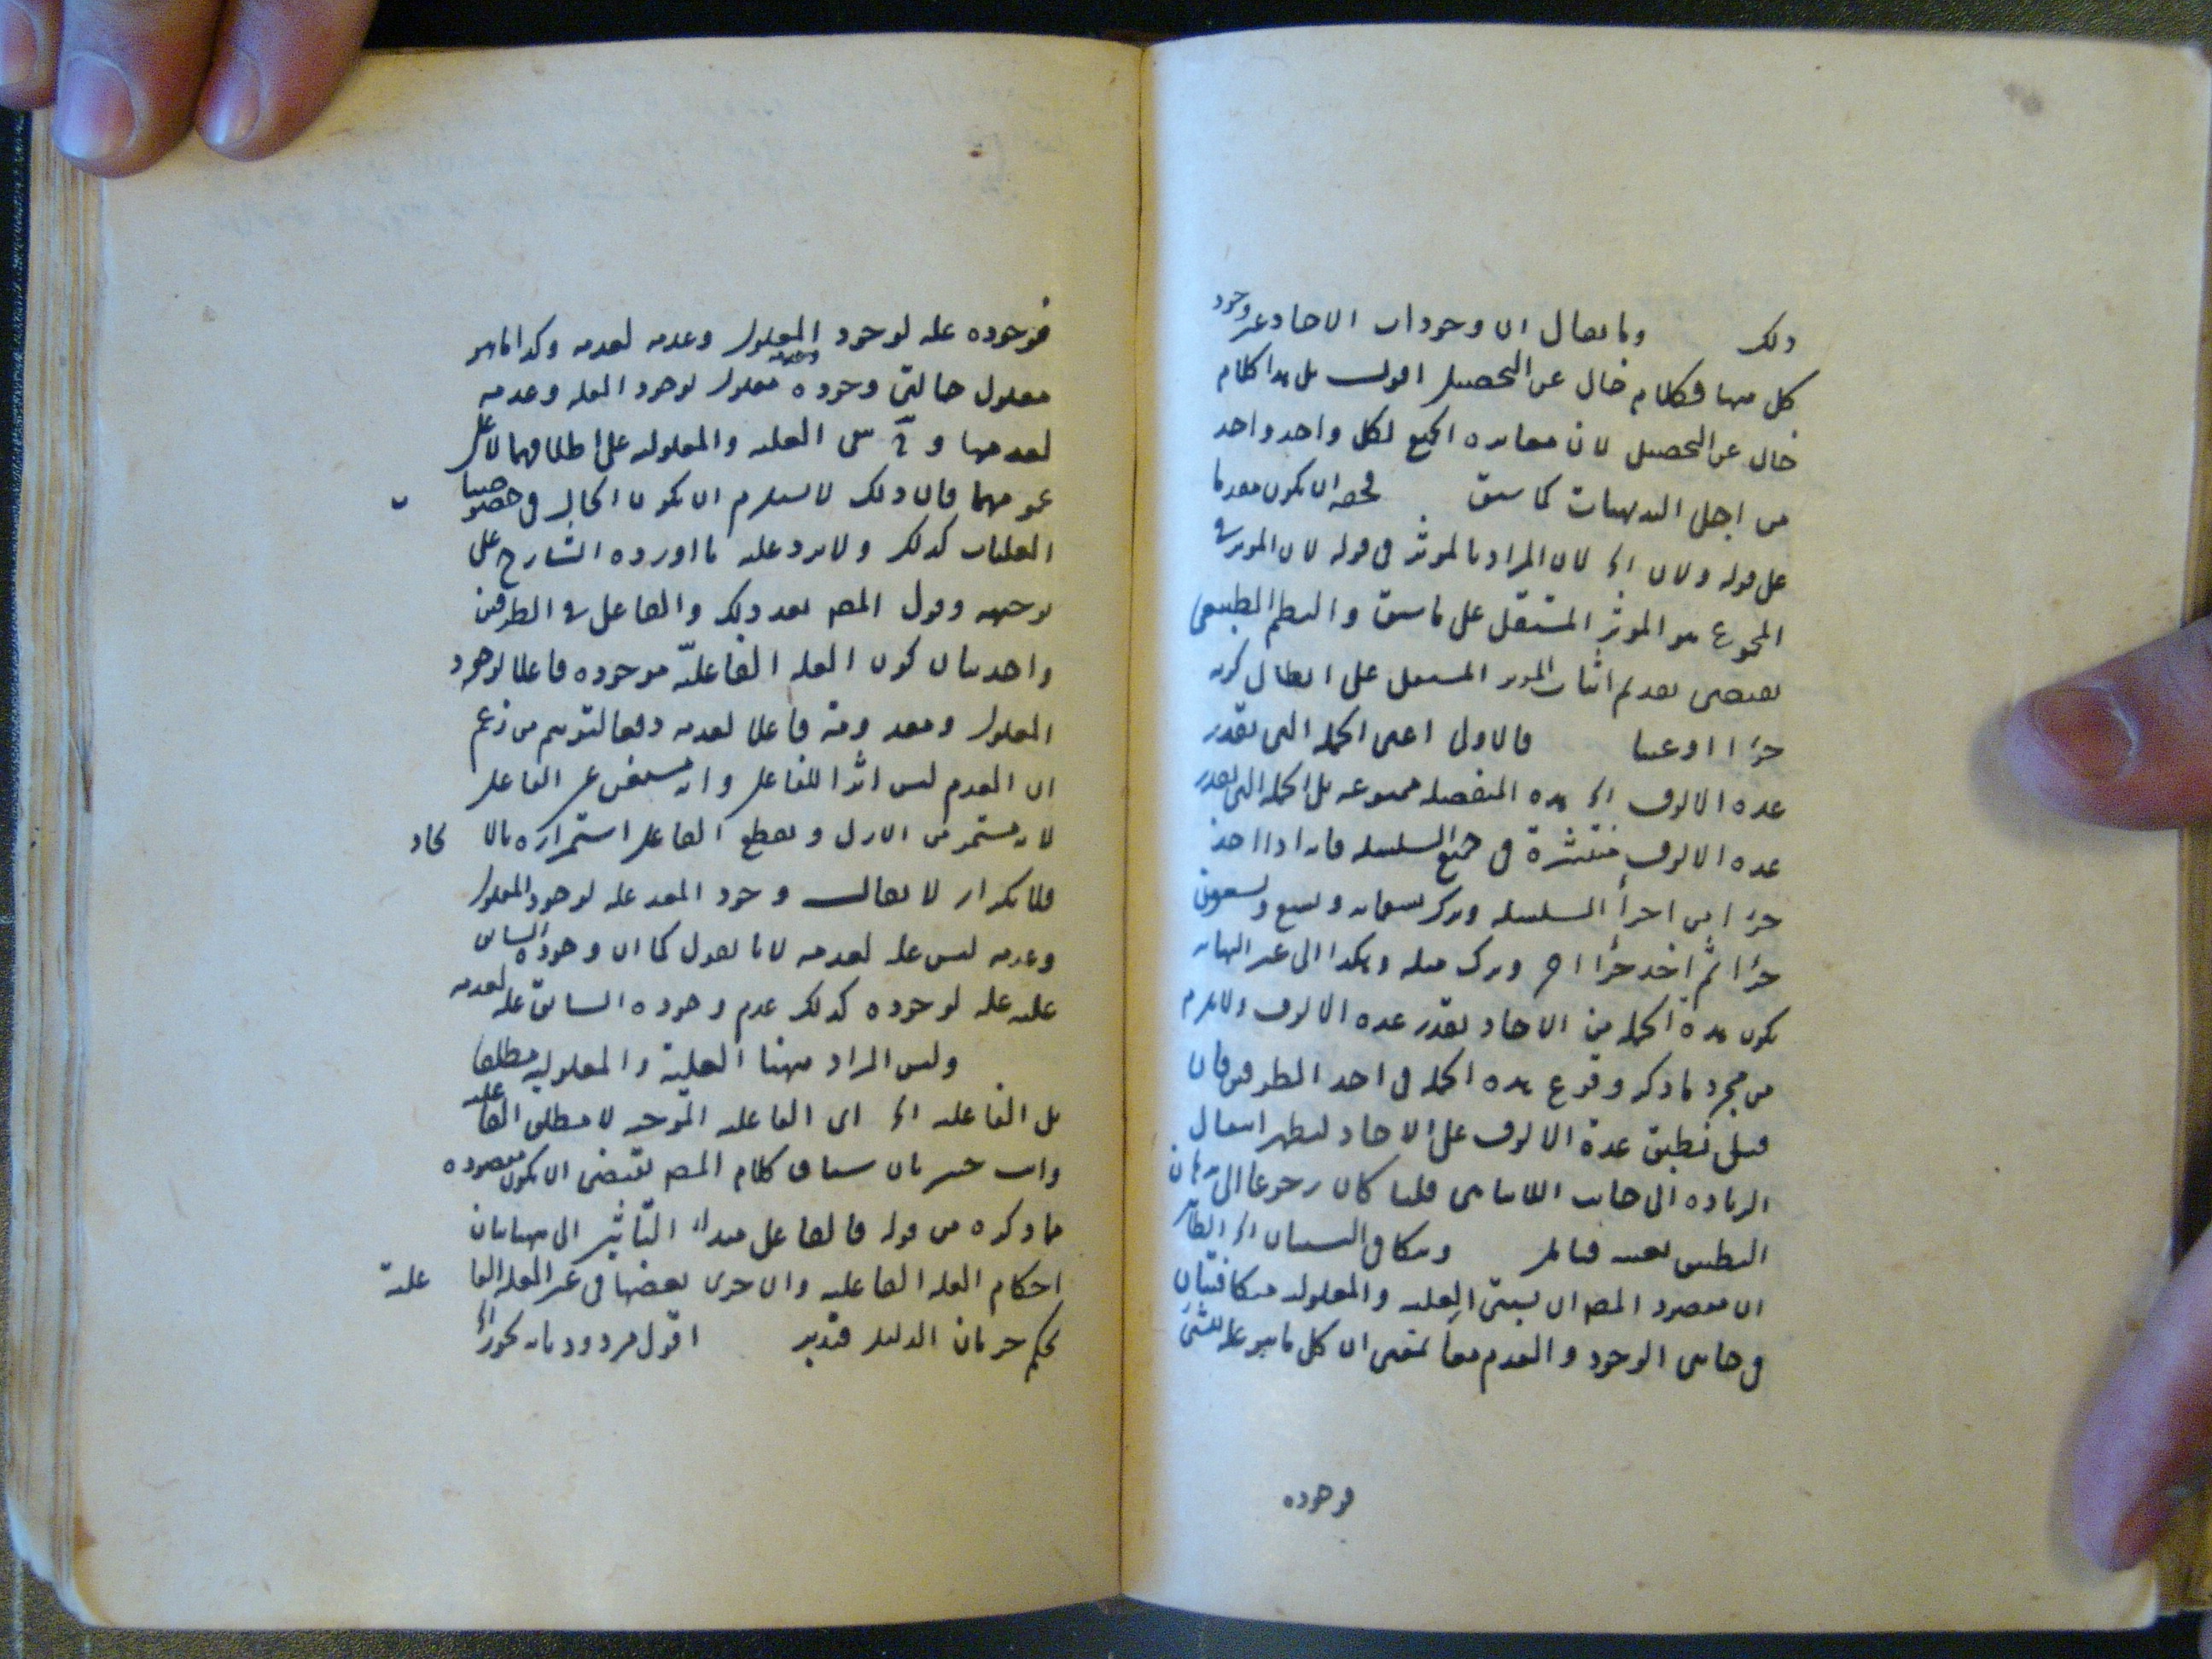 ذلك وما يقال ان وجودات الاحاد غير وجود
كل منها فكلام خال عن التحصيل اقول بل هذا كلام
خال عن التحصيل لان مغايرة الجميع لكل واحد واحد
من اجلى البديهيات كما سبق فحقه ان يكون مقدما
على قوله ولان الخ لان المراد بالموثر فى قوله لان الموثر فى
المجموع هو الموثر المستقل على ما سبق والنظم الطبيعى
يقتضى تقديم اثبات الموثر المستقل على ابطال كونه
جزءا او عينا فالاول اعنى الجملة التى بقدر
عدة الالوف الخ هذه المنفصلة ممنوعة بل الجملة التى بقدر
عدة الالوف منتشرة فى جميع السلسلة فانه اذا اخذ
جزءا من اجزأ السلسلة وترك تسعمائة وتسع وتسعون
جزءا ثم اخذ جزءا اخر وترك مثله وهكذا الى غير النهاية
يكون هذه الجملة من الاحاد بقدر عدة الالوف ولا يلزم
من مجرد ما ذكره وقوع هذه الجملة فى احد الطرفين فان
قيل نطبق عدة الالوف على الاحاد ليظهر انتقال
الزيادة الى جانب اللاتناهى قلنا كان رجوعا الى برهان
التطبيق بعينه فتامل ويتكافى النسبتان الخ الظاهر
ان مقصود المصـ ان نسبتى العلية والمعلولية متكافئتان
فى جانبى الوجود والعدم معا بمعنى ان كل ما هو علة لشئ
فوجوده
فوجوده علة لوجود المعلول وعدمه لعدمه وكذا ما هو
معلول حالتى وجوده وعدمه معلول لوجود العلة وعدمه
لعدمها و بين العلية والمعلولية على اطلاقهما لا على
عمومهما فان ذلك لا يستلزم ان يكون الحال فى خصوصيا ت
العليات كذلك ولا يرد عليه ما اورده الشارح على
توجيهه وقول المصـ بعد ذلك والفاعل فى الطرفين
واحد بيان كون العلة الفاعلية موجودة فاعلا لوجود
المعلول ومعدومة فاعلا لعدمه دفعا لتوهم من زعم
ان العدم ليس اثرا للفاعل وانه مستغن عن الفاعل
لانه مستمر من الازل ويقطع الفاعل استمراره بالا يجاد
فلا تكرار لا يقال وجود المعد علة لوجود المعلول
وعدمه ليس علة لعدمه لانا نقول كما ان وجوده السابق
عليه علة لوجوده كذلك عدم وجوده السابق علة لعدمه
وليس المراد ههنا العلية والمعلولية مطلقا
بل الفاعلية الخ اى الفاعلية الموجبة لا مطلق الفاعلية
وانت خبير بان سياق كلام المصـ يقتضى ان يكون مقصوده
مما ذكره من قوله فالفاعل مبدأ التأثير الى ههنا بيان
احكام العلة الفاعلية وان جرى بعضها فى غير العلة الفا علية
بحكم جريان الدليل فتدبر اقول مردود بانه يجوز الخ